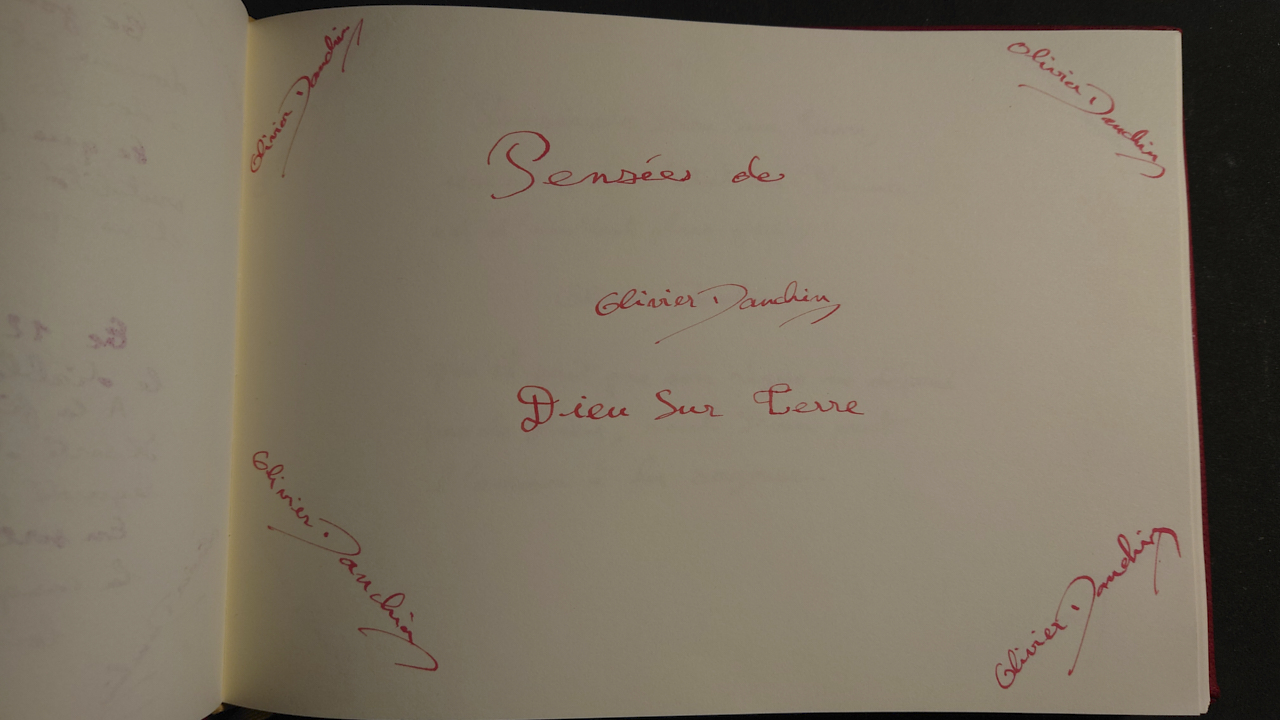 Olivier Dauchin
Olivier Dauchin
Pensées de
Olivier Dauchin
Dieu Sur Terre
Olivier Dauchin
Olivier Dauchin